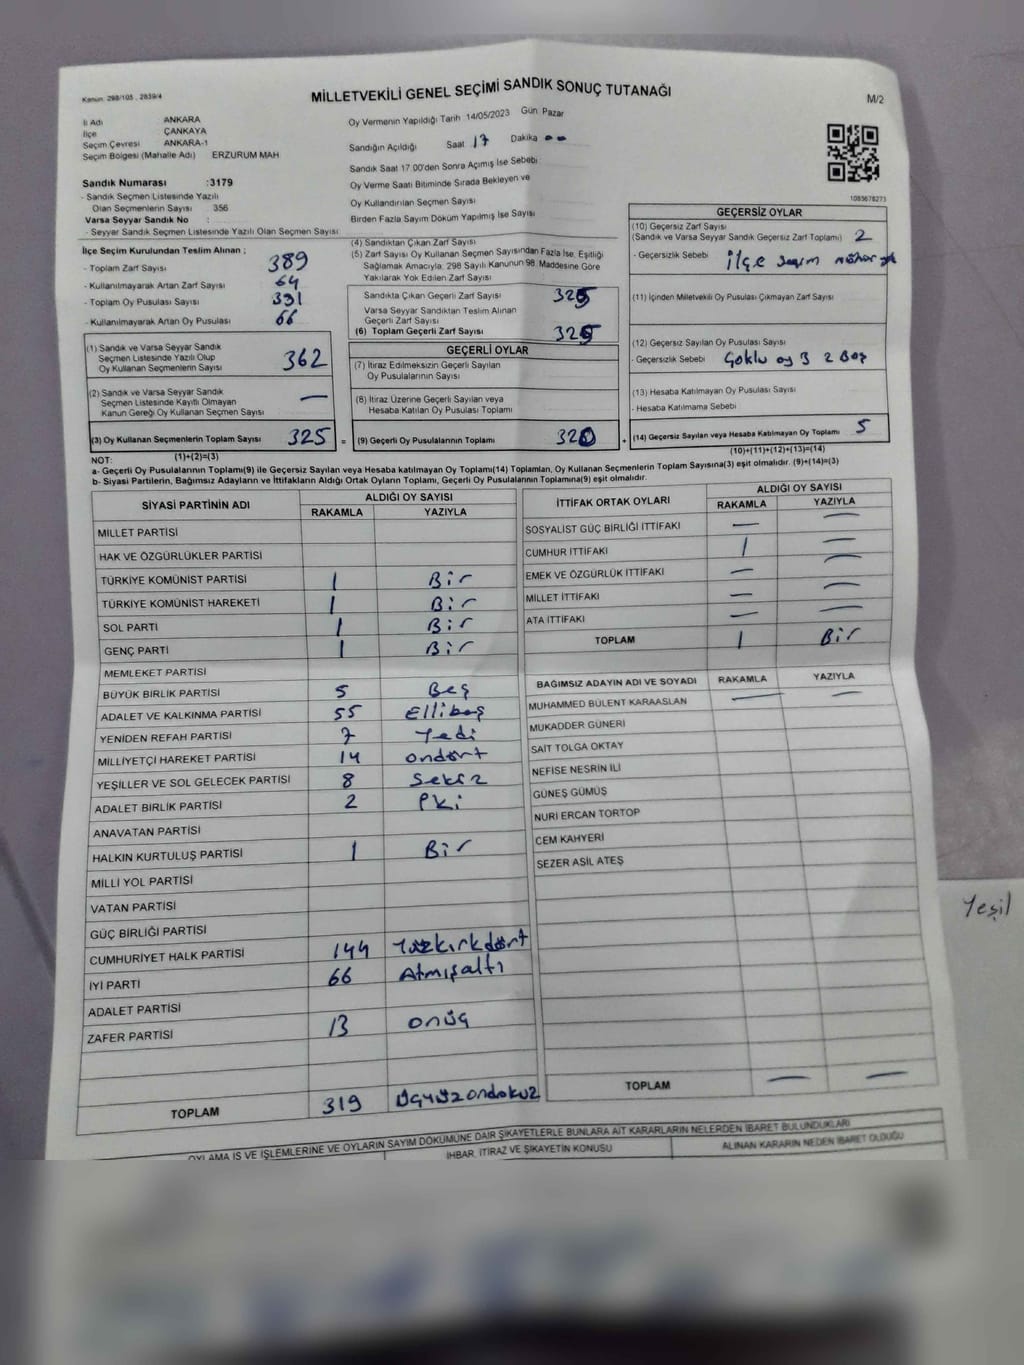 Kanun: 298/105 , 2839/4
MİLLETVEKİLİ GENEL SEÇİMİ SANDIK SONUÇ TUTANAĞI
M/2
İl Adı ANKARA
İlçe ÇANKAYA
Seçim Çevresi ANKARA-1
Seçim Bölgesi (Mahalle Adı) ERZURUM MAH
Sandık Numarası :3179
- Sandık Seçmen Listesinde Yazılı
Olan Seçmenlerin Sayısı 356
Varsa Seyyar Sandık No :
- Seyyar Sandık Seçmen Listesinde Yazılı Olan Seçmen Sayısı
Oy Vermenin Yapıldığı Tarih 14/05/2023 Gün Pazar
Sandığın Açıldığı Saat 17 Dakika --
Sandık Saat 17.00'den Sonra Açımış İse Sebebi :
Oy Verme Saati Bitiminde Sırada Bekleyen ve
Oy Kullandırılan Seçmen Sayısı
Birden Fazla Sayım Döküm Yapılmış İse Sayısı
1085678273
İlçe Seçim Kurulundan Teslim Alınan ;
- Toplam Zarf Sayısı 389
- Kullanılmayarak Artan Zarf Sayısı 64
- Toplam Oy Pusulası Sayısı 391
- Kullanılmayarak Artan Oy Pusulası 66
(1) Sandık ve Varsa Seyyar Sandık
Seçmen Listesinde Yazılı Olup
Oy Kullanan Seçmenlerin Sayısı 362
(2) Sandık ve Varsa Seyyar Sandık
Seçmen Listesinde Kayıtlı Olmayan
Kanun Gereği Oy Kullanan Seçmen Sayısı —
(3) Oy Kullanan Seçmenlerin Toplam Sayısı 325 =
(1)+(2)=(3)
(4) Sandıktan Çıkan Zarf Sayısı
(5) Zarf Sayısı Oy Kullanan Seçmen Sayısından Fazla İse, Eşitliği
Sağlamak Amacıyla; 298 Sayılı Kanunun 98. Maddesine Göre
Yakılarak Yok Edilen Zarf Sayısı
Sandıkta Çıkan Geçerli Zarf Sayısı 325
Varsa Seyyar Sandıktan Teslim Alınan
Geçerli Zarf Sayısı
(6) Toplam Geçerli Zarf Sayısı 325
GEÇERLİ OYLAR
(7) İtiraz Edilmeksizin Geçerli Sayılan
Oy Pusulalarının Sayısı
(8) İtiraz Üzerine Geçerli Sayılan veya
Hesaba Katılan Oy Pusulası Toplamı
(9) Geçerli Oy Pusulalarının Toplamı 320 +
GEÇERSİZ OYLAR
(10) Geçersiz Zarf Sayısı
(Sandık ve Varsa Seyyar Sandık Geçersiz Zarf Toplamı) 2
- Geçersizlik Sebebi ilçe seçim
(11) İçinden Milletvekili Oy Pusulası Çıkmayan Zarf Sayısı
(12) Geçersiz Sayılan Oy Pusulası Sayısı
- Geçersizlik Sebebi Çoklu oy 3 2 Boş
(13) Hesaba Katılmayan Oy Pusulası Sayısı
- Hesaba Katılmama Sebebi
(14) Geçersiz Sayılan veya Hesaba Katılmayan Oy Toplamı 5
(10)+(11)+(12)+(13)=(14)
NOT:
a- Geçerli Oy Pusulalarının Toplamı(9) ile Geçersiz Sayılan veya Hesaba katılmayan Oy Toplamı(14) Toplamları, Oy Kullanan Seçmenlerin Toplam Sayısına(3) eşit olmalıdır. (9)+(14)=(3)
b- Siyasi Partilerin, Bağımsız Adayların ve İttifakların Aldığı Ortak Oyların Toplamı, Geçerli Oy Pusulalarının Toplamına(9) eşit olmalıdır.
SİYASİ PARTİNİN ADI ALDIĞI OY SAYISI
RAKAMLA YAZIYLA
MİLLET PARTİSİ
HAK VE ÖZGÜRLÜKLER PARTİSİ
TÜRKİYE KOMÜNİST PARTİSİ 1 Bir
TÜRKİYE KOMÜNİST HAREKETİ 1 Bir
SOL PARTİ 1 Bir
GENÇ PARTİ 1 Bir
MEMLEKET PARTİSİ
BÜYÜK BİRLİK PARTİSİ 5 Beş
ADALET VE KALKINMA PARTİSİ 55 Ellibeş
YENİDEN REFAH PARTİSİ 7 Yedi
MİLLİYETÇİ HAREKET PARTİSİ 14 ondört
YEŞİLLER VE SOL GELECEK PARTİSİ 8 Sekiz
ADALET BİRLİK PARTİSİ 2 İki
ANAVATAN PARTİSİ
HALKIN KURTULUŞ PARTİSİ 1 Bir
MİLLİ YOL PARTİSİ
VATAN PARTİSİ
GÜÇ BİRLİĞİ PARTİSİ
CUMHURİYET HALK PARTİSİ 144 Yüzkırkdört
İYİ PARTİ 66 Atmışaltı
ADALET PARTİSİ
ZAFER PARTİSİ 13 onüç
TOPLAM 319 Üçyüzondokuz
İTTİFAK ORTAK OYLARI ALDIĞI OY SAYISI
RAKAMLA YAZIYLA
SOSYALİST GÜÇ BİRLİĞİ İTTİFAKI — —
CUMHUR İTTİFAKI 1 —
EMEK VE ÖZGÜRLÜK İTTİFAKI — —
MİLLET İTTİFAKI — —
ATA İTTİFAKI — —
TOPLAM 1 Bir
BAĞIMSIZ ADAYIN ADI VE SOYADI RAKAMLA YAZIYLA
MUHAMMED BÜLENT KARAASLAN — —
MUKADDER GÜNERİ
SAİT TOLGA OKTAY
NEFİSE NESRİN İLİ
GÜNEŞ GÜMÜŞ
NURİ ERCAN TORTOP
CEM KAHYERİ
SEZER ASİL ATEŞ
TOPLAM — —
Yeşil
OYLAMA İŞ VE İŞLEMLERİNE VE OYLARIN SAYIM DÖKÜMÜNE DAİR ŞİKAYETLERLE BUNLARA AİT KARARLARIN NELERDEN İBARET BULUNDUKLARI
İHBAR, İTİRAZ VE ŞİKAYETİN KONUSU
ALINAN KARARIN NEDEN İBARET OLDUĞU